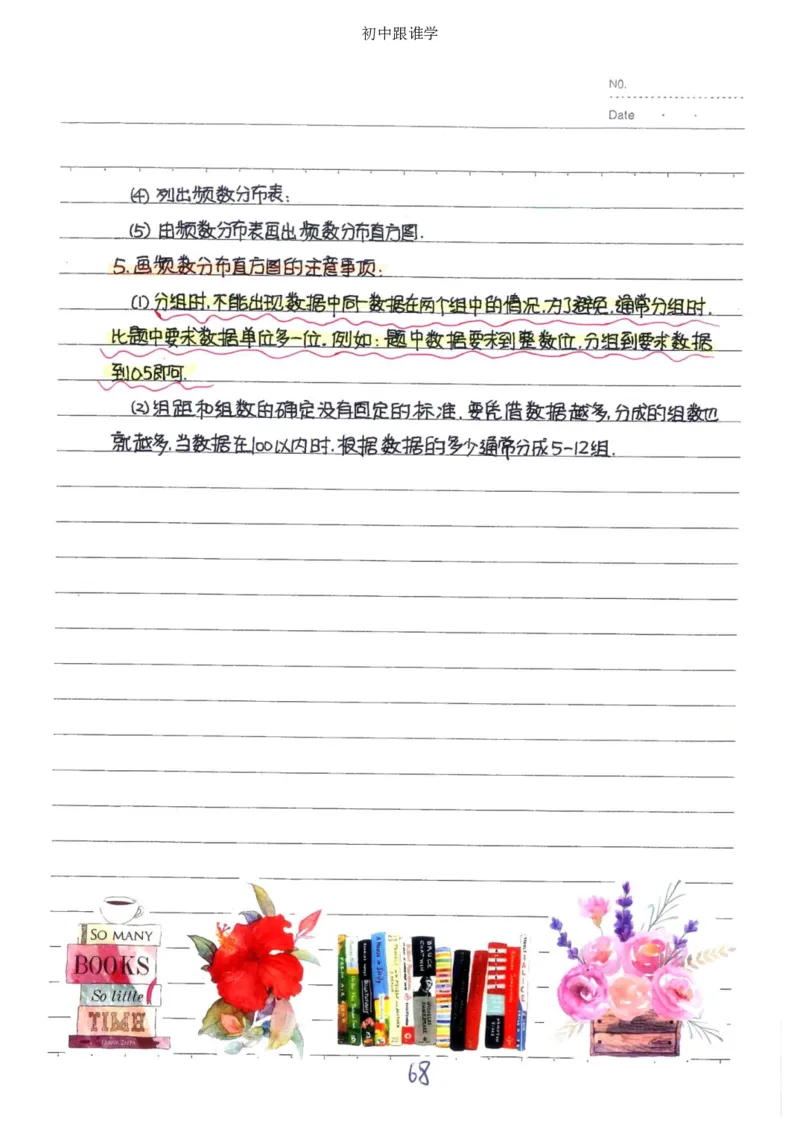 初中跟谁学
NO.
Date
(4) 列出频数分布表;
(5) 由频数分布表画出频数分布直方图.
5. 画频数分布直方图的注意事项:
(1) 分组时,不能出现数据中同一数据在两个组中的情况,为了避免,通常分组时,
比题中要求数据单位多一位.例如:题中数据要求到整数位,分组到要求数据
到0.5即可.
(2) 组距和组数的确定没有固定的标准,要凭借数据越多,分成的组数也
就越多,当数据在100以内时,根据数据的多少通常分成5-12组.
SO MANY
BOOKS
So little
TIME
68